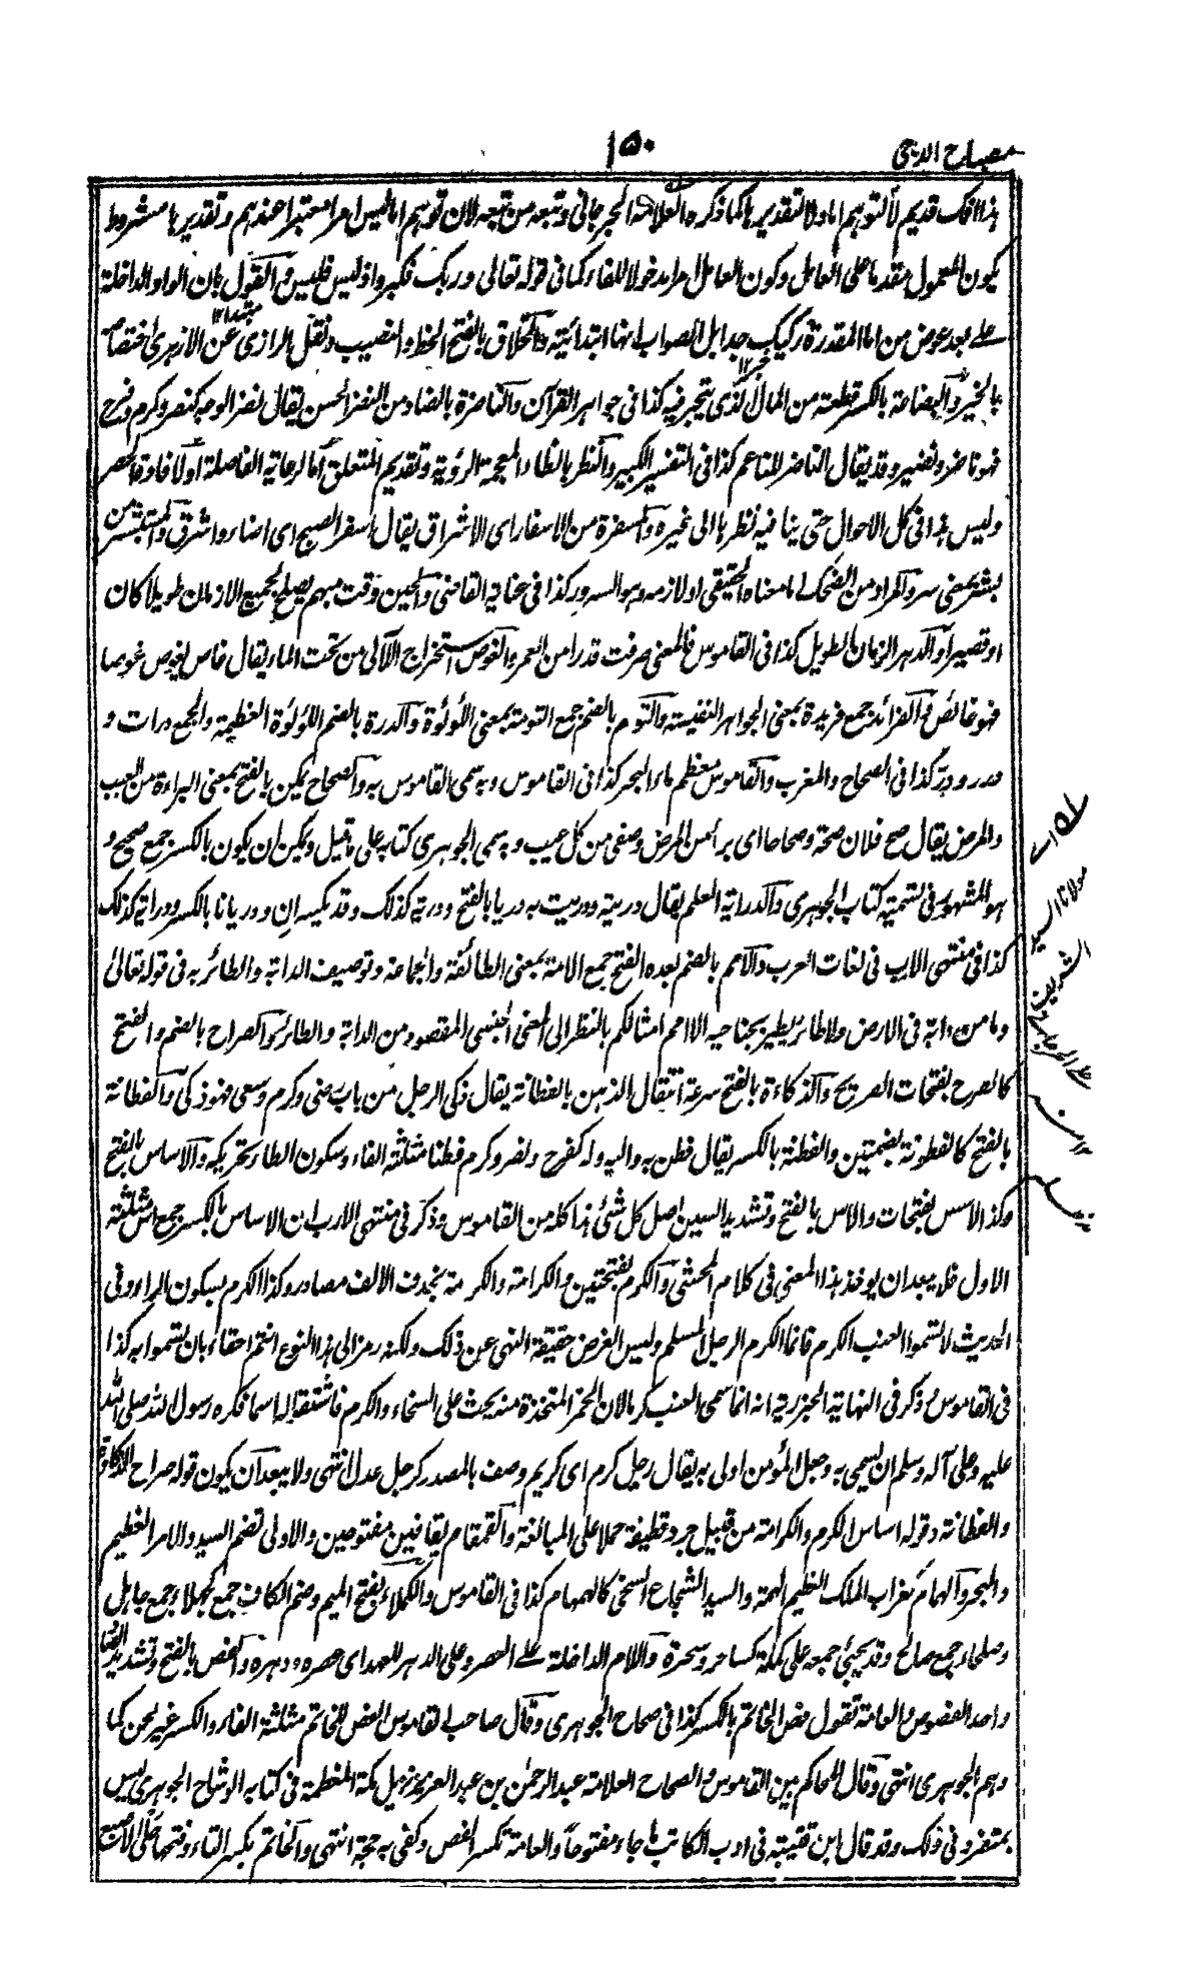 مصباح الدجى
١٥٠
هذا افك قديم لا لتوهم اما ولا لتقديرها كما ذكره العلامة الجرجاني وتبعه من تبعه لان توهم اما ليس امرا معتبرا عندهم وتقديرها مشروط
بكون المعمول مقدما على العامل وكون العامل امرا مدخولا للفاء كما في قوله تعالى وربك فكبر واذ ليس فليس والقول بان الواو الداخلة
على بعد عوض من اما المقدرة ركيك جدا بل الصواب انها ابتدائية والخلاق بالفتح الحظ والنصيب ونقل الرازي عن الازهري اختصاصه
بالخير والبضاعة بالكسر قطعة من المال الذي يتجر فيه كذا في جواهر القرآن والناضرة بالضاد من النضر الحسن يقال نضر الوجه كنصر وكرم وفرح
فهو ناضر ونضير وقد يقال الناضر للناعم كذا في التفسير الكبير والنظر بالظاء المعجمة الرؤية وتقديم المتعلق اما لرعاية الفاصلة اولا فادة الحصر
وليس هذا في كل الاحوال حتى ينافيه نظرها الى غيره والمسفرة من الاسفار اي الاشراق يقال اسفر الصبح اي اضاء واشرق والمستبشر من
بشر بمعنى سر والمراد من الضحك اما معناه الحقيقي او لازمه وهو السرور كذا في عناية القاضي والحين وقت مبهم يصلح لجميع الازمان طويلا كان
او قصيرا والدهر الزمان الطويل كذا في القاموس فالمعنى صرفت قدرا من العمر والغوص استخراج اللآلي من تحت الماء يقال غاص يغوص غوصا
فهو غائص والفرائد جمع فريدة بمعنى الجواهر النفيسة والتوم بالضم جمع التومة بمعنى اللؤلؤة والدرة بالضم اللؤلؤة العظيمة والجمع درات و
درر ودر كذا في الصحاح والمغرب والقاموس معظم ماء البحر كذا في القاموس وبه سمي القاموس به والصحاح يمكن بالفتح بمعنى البراءة من العيب
والمرض يقال صح فلان صحة وصحاحا اي برأ من المرض وصفى من كل عيب وبه سمي الجوهري كتابه على ما قيل ويمكن ان يكون بالكسر جمع صحيح و
هو المشهور في تسمية كتاب الجوهري والدراية العلم يقال دريته ودريت به دريا بالفتح ودرية كذلك وقد يكسران ودريانا بالكسر ودراية كذلك
كذا في منتهى الارب في لغات العرب والامم بالضم بعده الفتح جمع الامة بمعنى الطائفة والجماعة وتوصيف الدابة والطائر به في قوله تعالى
وما من دابة في الارض ولا طائر يطير بجناحيه الا امم امثالكم بالنظر الى المعنى الجنسي المقصود من الدابة والطائر والصراح بالضم والفتح
كالصرح بفتحات الصريح والذكاءة بالفتح سرعة انتقال الذهن بالفطانة يقال ذكى الرجل من باب رضي وكرم وسعى فهو ذكي والفطانة
بالفتح كالفطونة بضمتين والفطنة بالكسر يقال فطن به واليه وله كفرح ونصر وكرم فطنا مثلثة الفاء وسكون الطاء وتحريكه والاساس بالفتح
وكذا الاسس بفتحات والاس بالفتح وتشديد السين اصل كل شئ هذا كله من القاموس وذكر في منتهى الارب ان الاساس بالكسر جمع اس مثلثة
الاول فلا يبعد ان يوخذ هذا المعنى في كلام المحشي والكرم بفتحتين والكرامة والكرمة بحذف الالف مصادر وكذا الكرم بسكون الراء وفي
الحديث لا تسموا العنب الكرم فانما الكرم الرجل المسلم وليس الغرض حقيقة النهي عن ذلك ولكنه رمز الى ان هذا النوع انتم احقاء بان تسموا به كذا
في القاموس وذكر في النهاية الجزرية انه انما سمي العنب كرما لان الخمر المتخذة منه يحث على السخاء والكرم فاشتقوا له اسما فكره رسول الله صلى الله
عليه وعلى آله وسلم ان يسمى به وجعل المؤمن اولى به يقال رجل كرم اي كريم وصف بالمصدر كرجل عدل انتهى ولا يبعد ان يكون قوله صراح الذكاوة
والفطانة وقوله اساس الكرم والكرامة من قبيل جرد قطيفة حملا على المبالغة والقمقام بقافين مفتوحين والاولى تضم السيد والامر العظيم
والبحر والهمام كغراب الملك العظيم الهمة والسيد الشجاع السخي كالهمهام كذا في القاموس والكملاء بفتح الميم وضم الكاف جمع كجهلاء جمع جاهل
وصلحاء جمع صالح وقد يجئ جمعه على كملة كساحر وسحرة واللام الداخلة على العصر وعلى الدهر للعهد اي عصره ودهره والفص بالفتح وتشديد الصاد
واحد الفصوص والعامة تقول فص الخاتم بالكسر كذا في صحاح الجوهري وقال صاحب القاموس الفص للخاتم مثلثة الفاء والكسر غير لحن كما
وهم الجوهري انتهى وقال المحاكم بين القاموس والصحاح العلامة عبد الرحمن بن عبد العزيز نزيل مكة المعظمة في كتابه الوشاح الجوهري ليس
بمتفرد في ذلك وقد قال ابن قتيبة في ادب الكاتب ما جاء مفتوحا والعامة تكسر الفص وكفى به حجة انتهى والخاتم بكسر التاء وفتحها
مولانا السيد
الشريف
على الجرجاني